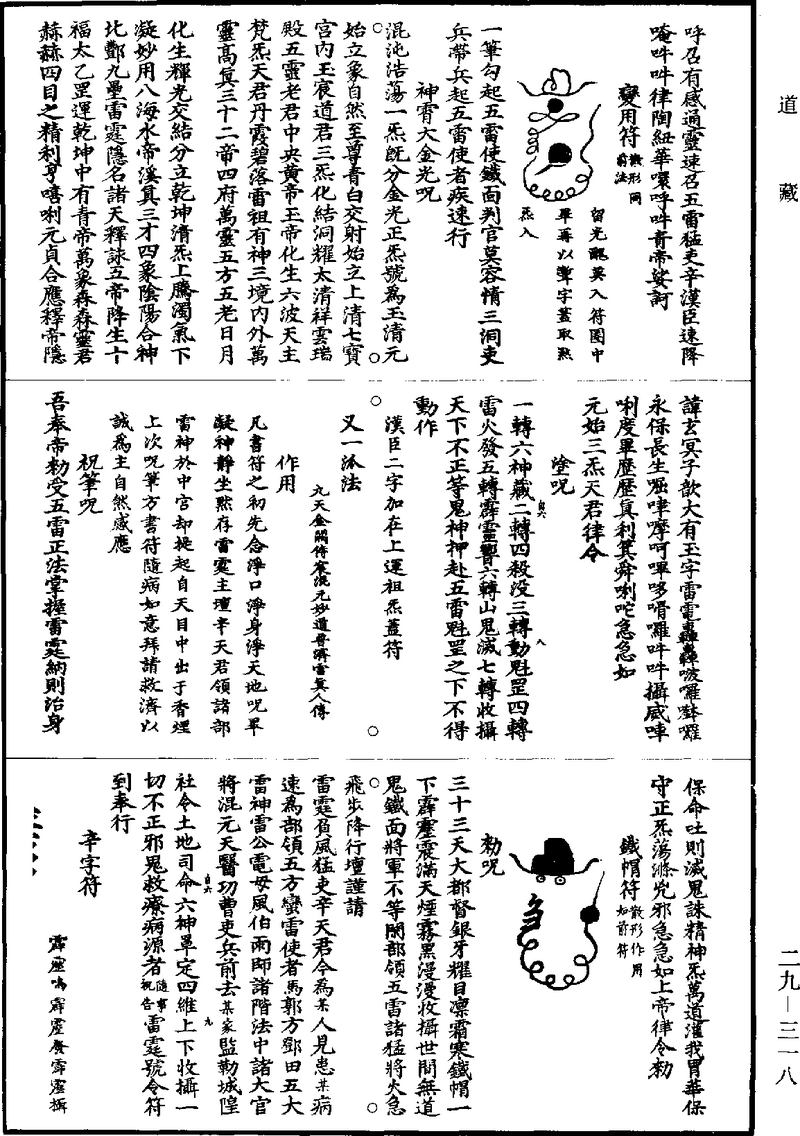 道藏
呼召有感通靈速召五雷猛吏辛漢臣速降
唵吽吽律陶紐華嚾呼吽青帝娑訶
變用符散形同前法
留光醮莫入符圈中
畢再以䨻字蓋取炁
炁入
一筆勾起五雷使鐵面判官莫容情三洞吏
兵帶兵起五雷使者疾速行
神霄大金光呪
混沌浩蕩一炁既分金光正炁號為玉清元
始立象自然至尊青白交射始立上清七寶
宮內玉宸道君三炁化結洞耀太清祥雲瑞
殿五靈老君中央黃帝玉帝化生六波天主
梵炁天君丹霞碧落雷祖有神三境內外萬
靈高真三十二帝四府萬靈五方五老日月
化生輝光交結分立乾坤清炁上騰濁氣下
凝妙用八海水帝溪真三才四象陰陽合神
北酆九壘雷霆隱名諸天釋詠五帝降生十
福太乙罡運乾坤中有青帝萬象森森靈君
赫赫四目之精利亨嘻唎元貞合應釋帝隱
諱玄冥子歆大有玉字雷電轟轟
永保長生
唎度畢歷歷真利箕舜唎咜急急如
元始三炁天君律令
塗呪
一轉六神藏二轉四殺没三轉動魁罡四轉
雷火發五轉霹靂響六轉山鬼滅七轉收攝
天下不正等鬼神押赴五雷魁罡之下不得
動作
漢臣二字加在上運祖炁蓋符
又一派法
九天金闕侍宸混元妙道普濟雷真人傳
作用
凡書符之初先念淨口淨身淨天地呪畢
凝神靜坐默存雷霆主壇辛天君領諸部
雷神於中宮却提起自天目中出于香煙
上次呪筆方書符隨病如意拜請救濟以
誠為主自然感應
祝筆呪
吾奉帝勑受五雷正法掌握雷霆納則治身
保命吐則滅鬼誅精神炁萬道灌我胃華保
守正炁蕩滌兇邪急急如上帝律令勑
鐵帽符散形作用如前符
勑呪
三十三天大都督銀牙耀目凜霜寒鐵帽一
下霹靂震滿天煙霧黑漫漫收攝世間無道
鬼鐵面將軍不等閑部領五雷諸猛將火急
飛步降行壇謹請
雷霆負風猛吏辛天君今為某人見患某病
速為部領五方蠻雷使者馬郭方鄧田五大
雷神雷公電母風伯雨師諸階法中諸大官
將混元天醫功曹吏兵前去某家監勒城隍
社令土地司命六神罩定四維上下收攝一
切不正邪鬼救療病源者隨事祝告雷霆號令符
到奉行
辛字符
霹靂鳴霹靂發霹靂攝
二九—三一八